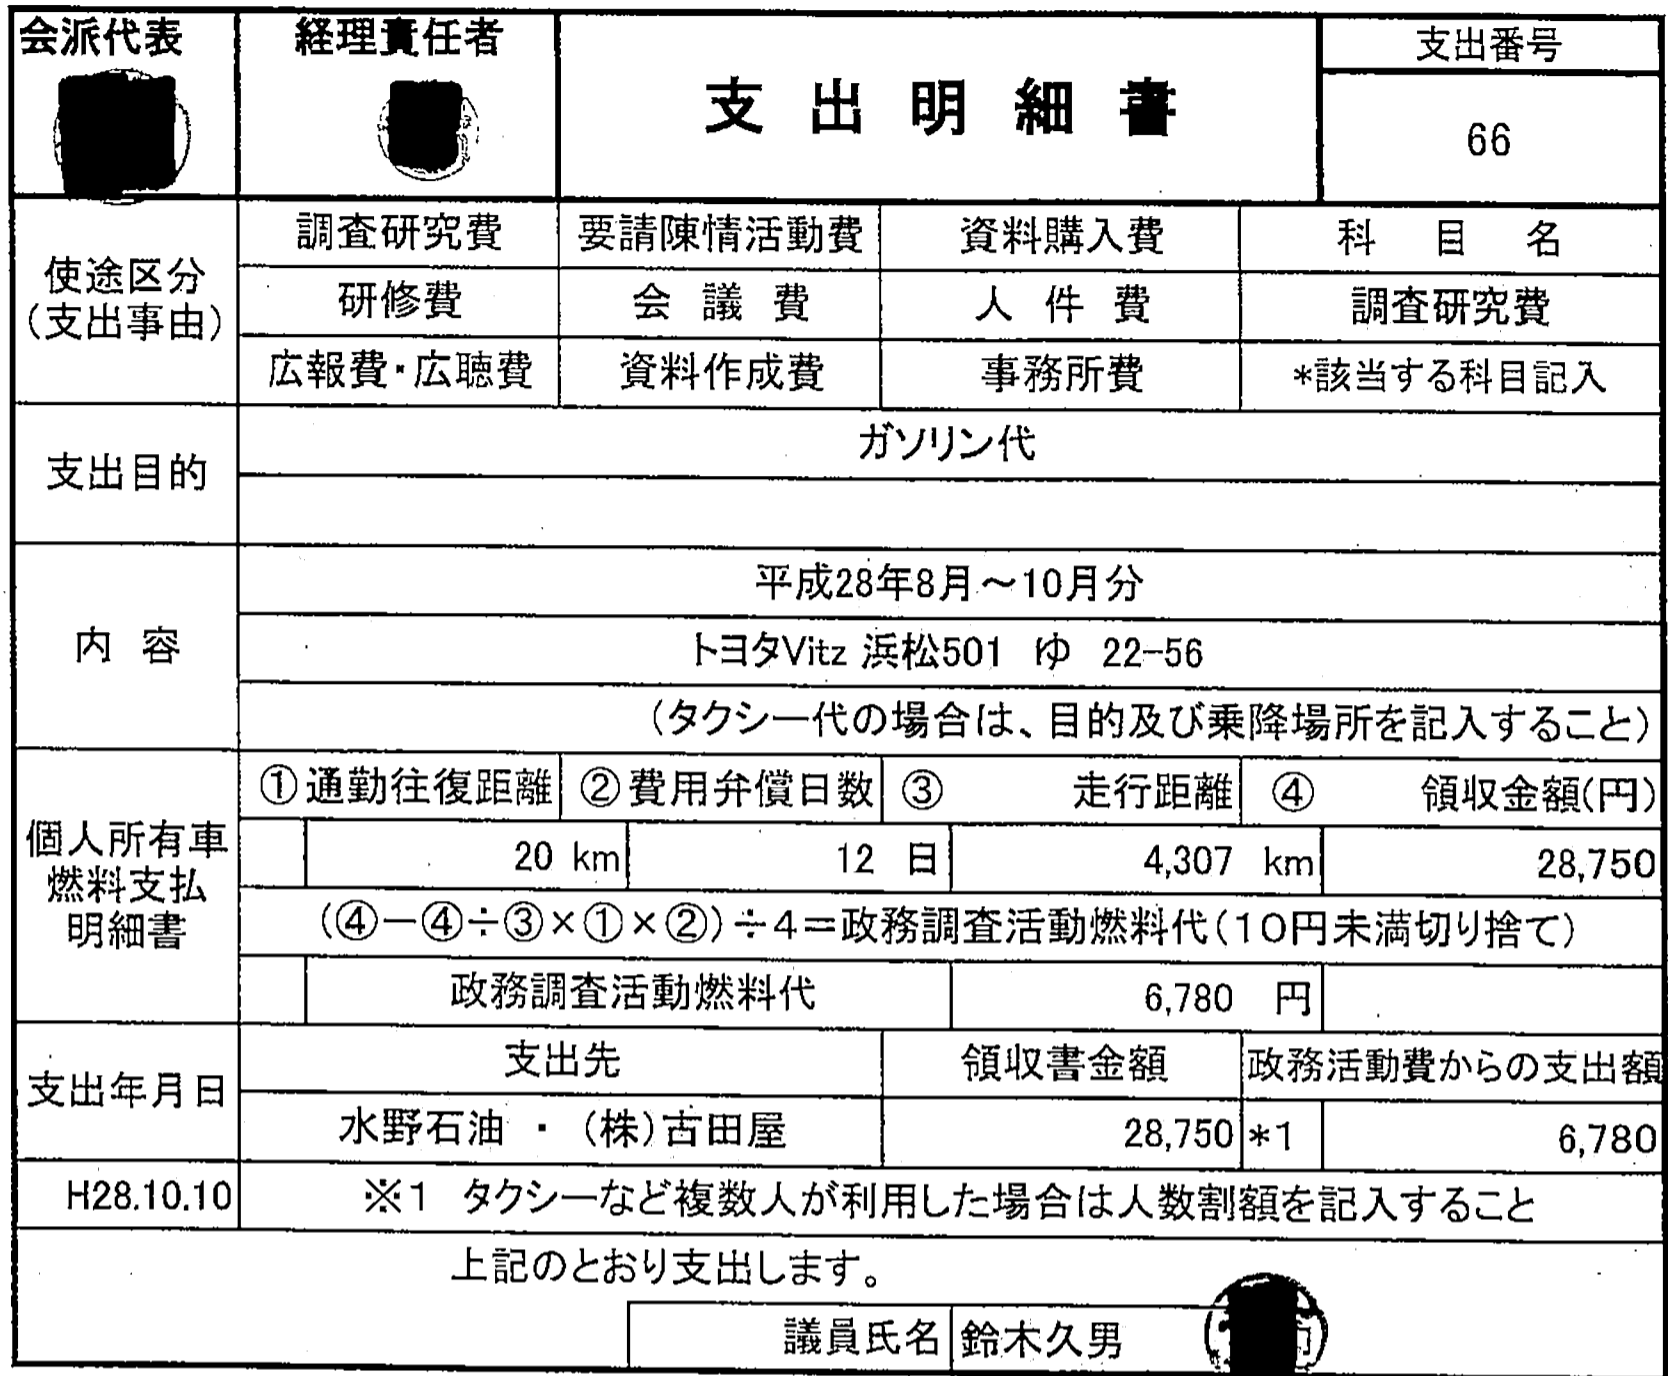 会派代表
経理責任者
支出明細書
支出番号
66
使途区分
(支出事由)
調査研究費 要請陳情活動費 資料購入費 科目名
研修費 会議費 人件費 調査研究費
広報費・広聴費 資料作成費 事務所費 *該当する科目記入
支出目的
ガソリン代
内容
平成28年8月～10月分
トヨタVitz 浜松501 ゆ 22-56
(タクシー代の場合は、目的及び乗降場所を記入すること)
個人所有車
燃料支払
明細書
①通勤往復距離 ②費用弁償日数 ③ 走行距離 ④ 領収金額(円)
20 km 12 日 4,307 km 28,750
(④－④÷③×①×②)÷4＝政務調査活動燃料代(10円未満切り捨て)
政務調査活動燃料代 6,780 円
支出年月日
支出先 領収書金額 政務活動費からの支出額
水野石油 ・ (株)古田屋 28,750 *1 6,780
H28.10.10 ※1 タクシーなど複数人が利用した場合は人数割額を記入すること
上記のとおり支出します。
議員氏名 鈴木久男